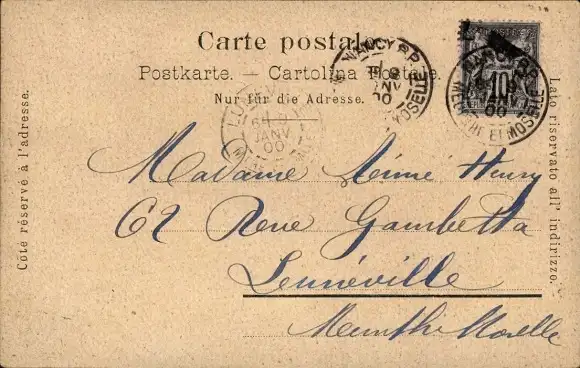 Carte postale.
Postkarte. — Cartolina Postale.
Nur für die Adresse.
Côté réservé à l'adresse.
Lato riservato all' indirizzo.
NANCY R.P.
9
JANV
00
MOSELLE
NANCY R.P.
00
MEURTHE ET MOSELLE
10
LUN
6 9
JANV
00
Madame Aimé Henry
62 Rue Gambetta
Lunéville
Meurthe Moselle